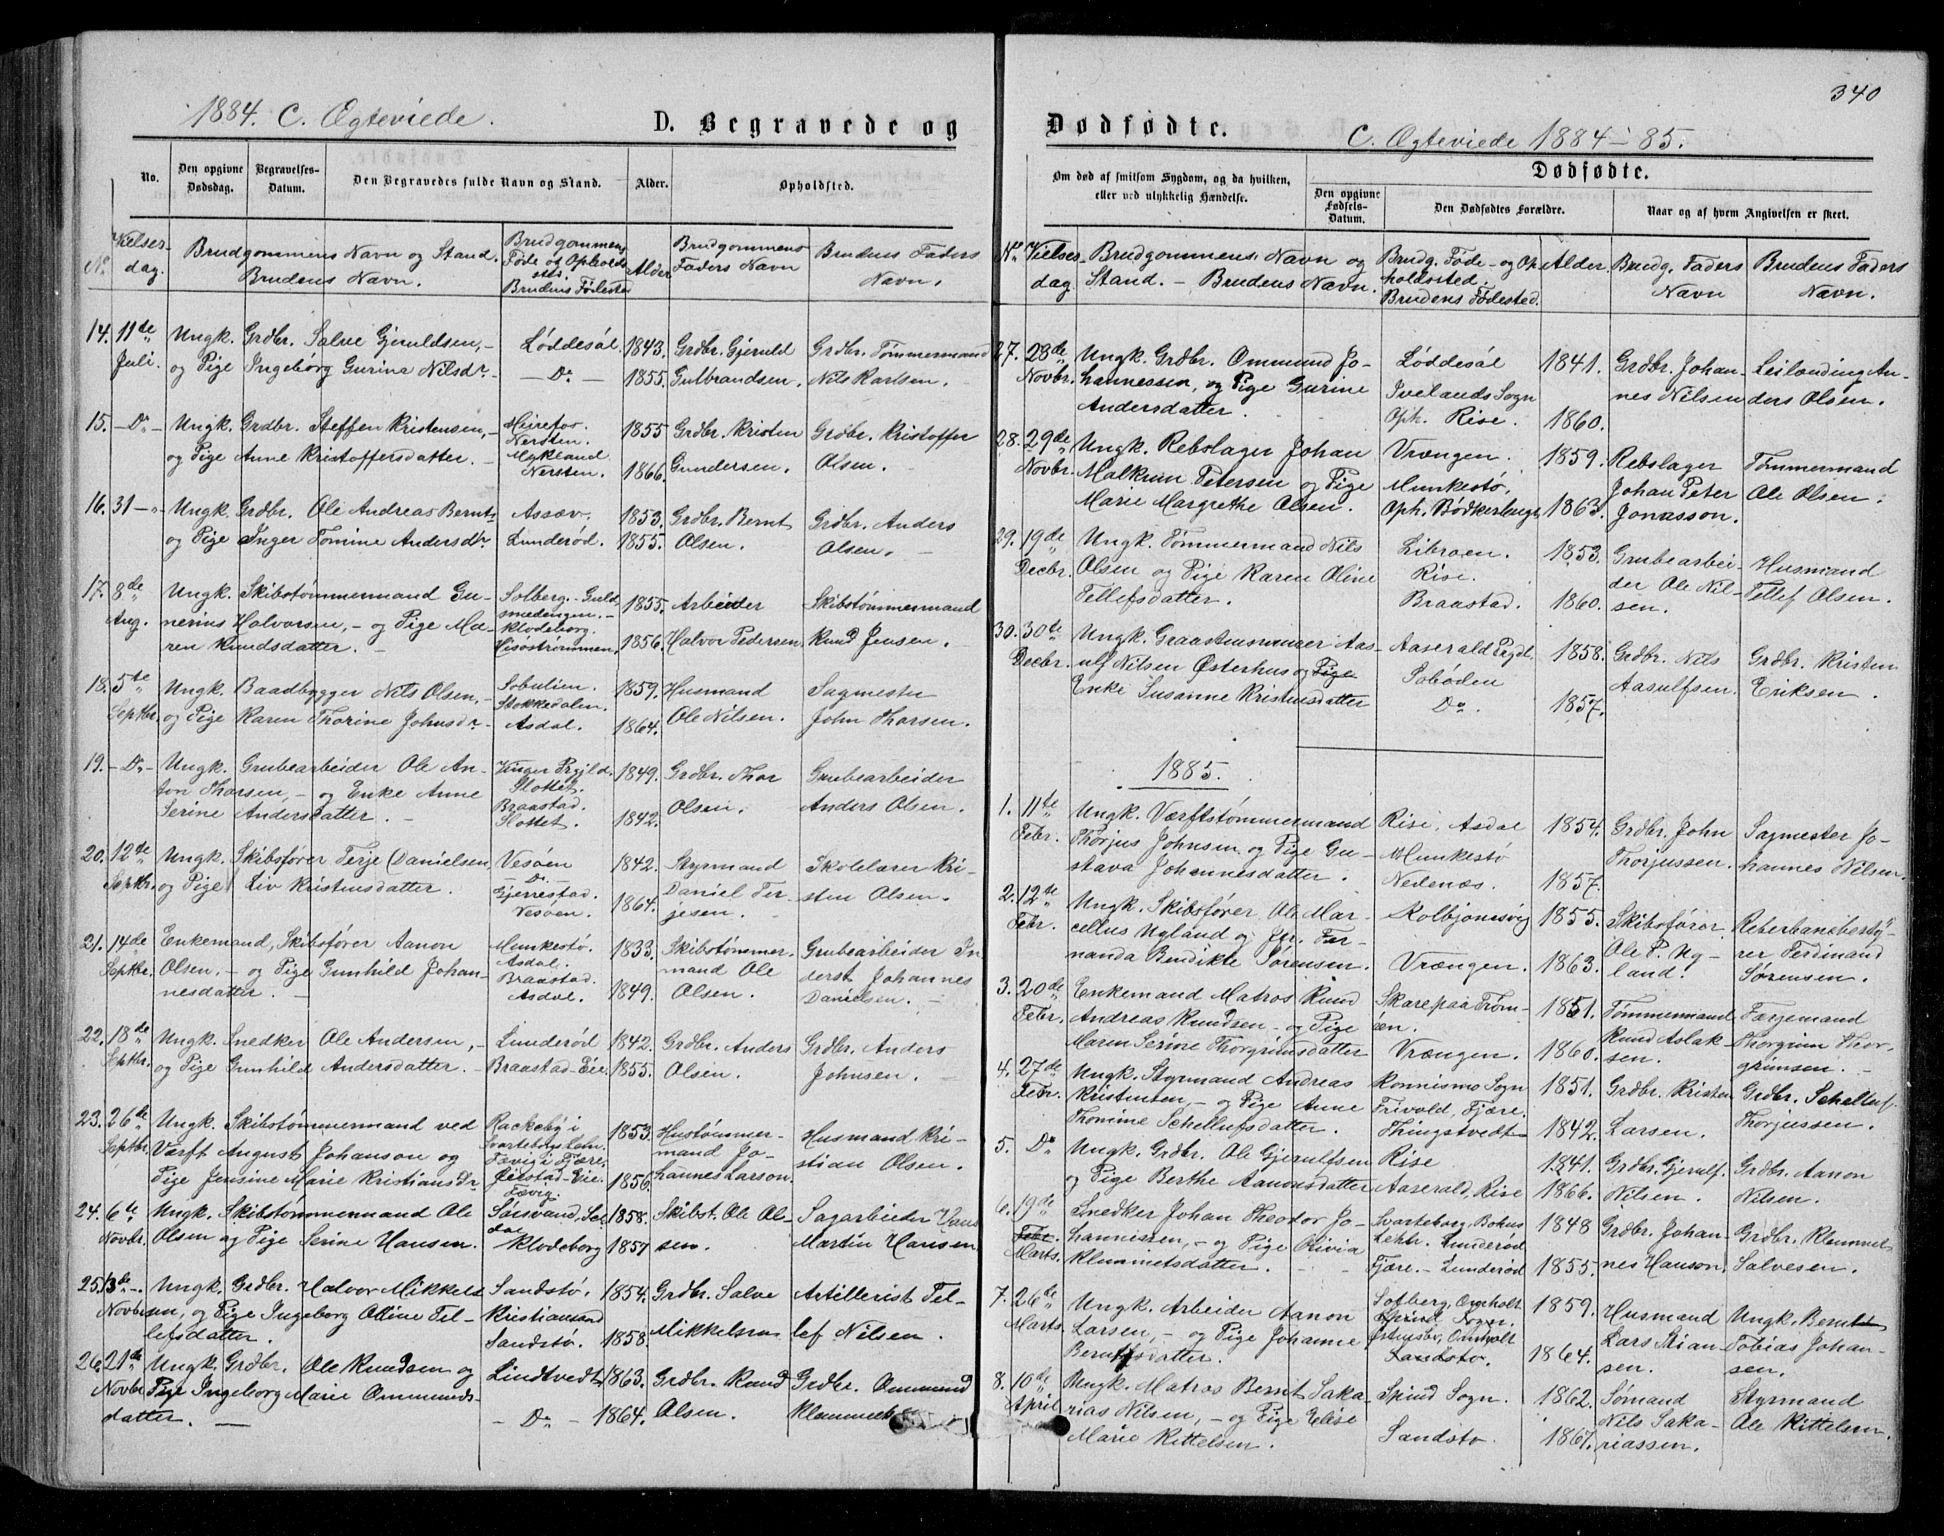 340
1884. C. Ægteviede.
D. Begravede og
Dødfødte.
C. Ægteviede 1884-85.
No.
Den opgivne Dødsdag.
Begravelses-Datum.
Den Begravedes fulde Navn og Stand.
Alder.
Opholdsted.
Om død af smitsom Sygdom, og da hvilken,
eller ved ulykkelig Hændelse.
Dødfødte.
Den opgivne Fødsels-Datum.
Den Dødfødtes Forældre.
Naar og af hvem Angivelsen er skeet.
No.
Vielses-dag.
Brudgommens Navn og Stand.
Brudens Navn.
Brudgommens Føde og Opholdssted.
Brudens Fødested
Alder
Brudgommens Faders Navn
Brudens Faders Navn.
14. 11de Ungk. Grdbr. Salve Gjeruldsen, - Løddesøl 1843. Grdbr. Gjeruld Grdbr. Tømmermand
Juli. og Pige Ingeborg Gurina Nilsdr. - Do - 1855. Gulbrandsen. Nils Karlsen.
15. - Do - Ungk. Grdbr. Steffen Kristensen, - Heirefos. 1855 Grdbr. Kristen Grdbr. Kristoffer
Nersten.
og Pige Anne Kristoffersdatter. - Mykland 1866. Gundersen. Olsen.
Nersten.
16. 31 - Ungk. Grdbr. Ole Andreas Bernts- Assæv. 1853. Grdbr. Bernt Grdbr. Anders
og Pige Inger Tomine Andersdr. Lunderød. 1855. Olsen. Olsen.
17. 8de Ungk. Skibstømmermand Gu- Solberg. Guld- 1855. Arbeider Skibstømmermand
Aug. nerius Halvorsen, - og Pige Ma- smedengen. - Klodeborg. 1856. Halvor Pedersen Knud Jensen.
ren Knudsdatter. - Hisøstrømmen.
18. 5te Ungk. Baadbygger Nils Olsen, Sobulien. 1859. Husmand Sagmester
Septbr. og Pige Karen Thorine Johnsdr. Stokkedalen. Asdal. 1864. Ole Nilsen. John Tharsen.
19. - Do - Ungk. Grubearbeider Ole An- 1849. Grdbr. Thor Grubearbeider
ton Thorsen, - og Enke Anne Slottet. Braastad. Olsen. Anders Olsen.
Serine Andersdatter. - Slottet. 1842.
20. 12te Ungk. Skibsfører Terje Danielsen Vesøen 1842. Styrmand Skolelærer Kri-
Septbr. og Pige Liv Kristensdatter. - Do - Gjerrestad- 1864. Daniel Ter- sten Olsen.
Vesøen. jesen.
21. 14de Enkemand, Skibsfører Aanon Munkestø. 1833. Skibstømmer- Grubearbeider
Septbr. Olsen, - og Pige Gunhild Johan- Asdal. Braastad. mand Ole Johannes
nesdatter. - Asdal. 1849. Olsen. Danielsen.
22. 18de Ungk. Snedker Ole Andersen, - Lunderød 1842. Grdbr. Anders Grdbr. Anders
Septbr. og Pige Gunhild Andersdatter. - Braastad-Eie. 1855. Olsen. Johnsen.
23. 26de Ungk. Skibstømmermand ved Rackeby i 1853. Hustømmer- Husmand Kri-
Septbr. Værft August Johanson og Svarteborg Lehn. mand Jo- stian Olsen.
Fævig i Fjære.
Pige Jensine Marie Kristians Dr. Eie 1856. hannes Larson.
Fævig.
24. 6te Ungk. Skibstømmermand Ole 1858. Skibst. Ole Ol- Sagarbeider Hans
Novbr. Olsen og Pige Serine Hansen. Klodeborg 1857 sen. Martin Hansen
25. 13de Ungk. Grdbr. Halvor Mikkel- Sandstø. 1854. Grdbr. Salve Artillerist Tel-
Novbr. sen, og Pige Ingeborg Olline Tel- Kristiansand Mikkelsen lef Nilsen.
lefsdatter. Sandstø. 1858.
26. 21de Ungk. Grdbr. Ole Knudsen og Lindtvedt 1863. Grdbr. Knud Grdbr. Ommund
Novbr. Pige Ingeborg Marie Ommunds- - Do - 1864. Olsen.
datter. -
No. Vielses-dag
Brudgommens Navn og Stand. - Brudens Navn.
Brudg. Føde- og Opholdssted.
Brudens Fødested.
Alder.
Brudg. Faders Navn
Brudens Faders Navn.
27. 28de Ungk. Grdbr. Ommund Jo- Løddesøl 1841. Grdbr. Johan- Leilænding An-
Novbr. hannessen, og Pige Gurine Ivelands Sogn nes Nilsen ders Olsen.
Andersdatter. Oph. Rise. 1860.
28. 29de Ungk. Rebslager Johan Vrængen. 1859. Rebslager Tømmermand
Novbr. Malkum Petersen og Pige Munkestø, Johan Peter Ole Olsen.
Marie Margrethe Olsen. Oph. 1863. Jonasson.
29. 19de Ungk. Tømmermand Nils Libroen. 1853. Grubearbei- Husmand
Decbr. Olsen og Pige Karen Oline Rise. der Ole Nil- Tellef Olsen.
Tellefsdatter. Braastad. 1860. sen.
30. 30te Ungk. Aas- Aaserald Prgd. 1858. Grdbr. Nils Grdbr. Kristen
Decbr. ulf Nilsen Østerhus og Pige Sobøden Aasulfsen. Eriksen.
Enke Susanne Kristensdatter Do. 1857.
1885.
1. 11te Ungk. Værftstømmermand Rise, Asdal 1854. Grdbr. John Sagmester Jo-
Febr. Thorjus Johnsen og Pige Gu- Munkestø Thorjussen. hannes Nilsen.
stava Johannesdatter. Nedenæs. 1857.
2. 12te Ungk. Skibsfører Ole Mar- Kolbjønsvig 1855. Skibsfører
Febr. cellus Ugland og Jfr. Fer- Ole P. Ug- rer Ferdinand
nanda Bendikte Sørensen. Vrængen. 1863. land. Sørensen.
3. 20de Enkemand Matros Knud Skare paa Trom- 1851. Tømmermand Færjemand
Febr. Andreas Knudsen - og Pige øen. Knud Aslak- Thorgrim Thor-
Maren Serine Thorgrimsdatter Vrængen. 1860. sen. grimsen. -
4. 27de Ungk. Styrmand Andreas Sogn 1851. Grdbr. Kristen Grdbr. Schelluf
Febr. Kristensen, - og Pige Anne Frivold, Fjære. Larsen. Thorjussen.
Thomine Schellufsdatter. Thingstvedt 1842.
5. Do Ungk. Grdbr. Ole Gjerulfsen Rise 1841. Grdbr. Gjerulf Grdbr. Aanon
og Pige Berthe Aanonsdatter Aaserald, Rise 1866. Nilsen. Nilsen.
6. 19de Snedker Johan Theodor Jo- Svarteborg Bohus 1848 Grdbr. Johan- Grdbr. Klemmet
Febr. Marts. hannissen, - og Pige Olivia Lehn. Lunderød nes Hanson. Salvesen.
Klemmetsdatter. Fjære. - Lunderød 1855.
7. 26de Ungk. Arbeider Aanon Solberg, Omholt 1859. Husmand Ungk. Bernt
Marts. Larsen, - og Pige Johanne Omholt Lars Tobias Johan-
Berntsdatter. Sandstø. 1864. sen. sen.
8. 10de Ungk. Matros Bernt Saka- Spind Sogn. 1862. Sømand Styrmand
April rias Nilsen, - og Pige Elise Nils Saka- Ole Kittelsen.
Marie Kittelsen. Sandstø. 1867. riassen.